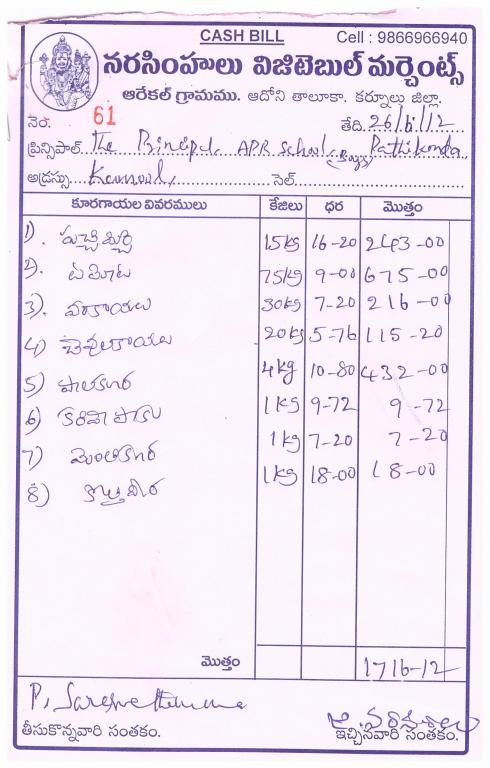 CASH BILL Cell : 9866966940
నరసింహులు విజిటెబుల్ మర్చెంట్స్
ఆరేకల్ గ్రామము. ఆదోని తాలూకా. కర్నూలు జిల్లా.
నెం. 61 తేది. 26/6/12
ప్రిన్సిపాల్ The Principal APR School (Boys) Pattikonda
అడ్రస్సు Kurnool సెల్
కూరగాయల వివరములు కేజిలు ధర మొత్తం
1). పచ్చిమిర్చి 15kg 16-20 243-00
2). టమోట 75kg 9-00 675-00
3). వంకాయలు 30kg 7-20 216-00
4) 20kg 5-76 115-20
5) పాలకూర 4kg 10-80 432-00
6) కరివేపాకు 1kg 9-72 9-72
7) మెంతికూర 1kg 7-20 7-20
8) కొత్తిమీర 1kg 18-00 18-00
మొత్తం 1716-12
తీసుకొన్నవారి సంతకం. ఇచ్చినవారి సంతకం.